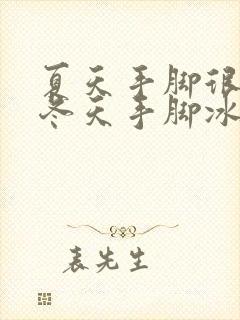 夏天手脚很
冬天手脚冰
表先生